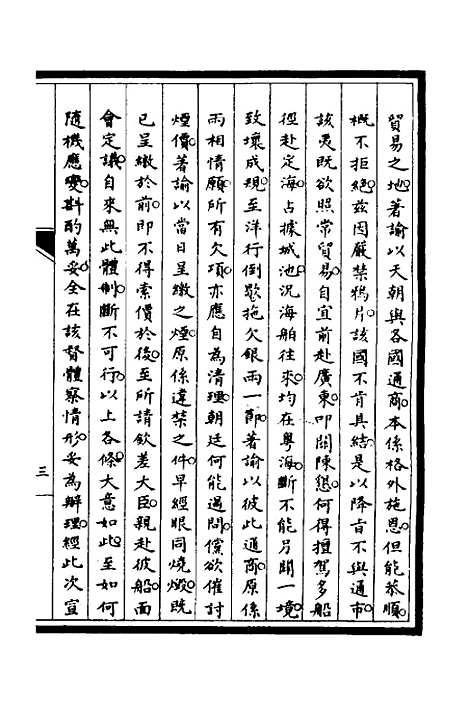 貿易之地著諭以天朝與各國通商本係格外施恩但能恭順
概不拒絕茲因嚴禁鴉片該國不肯具結是以降旨不與通市
該夷既欲照常貿易自宜前赴廣東叩關陳懇何得擅駕多船
徑赴定海占據城池況海舶往來均在粵海斷不能另開一境
致壞成規至洋行倒歇拖欠銀兩一節著諭以彼此通商原係
兩相情願所有欠項亦應自為清理朝廷何能過問儻欲催討
煙價著諭以當日呈繳之煙原係違禁之件早經眼同燒燬既
已呈繳於前即不得索償於後至所請欽差大臣親赴彼船面
會定議自來無此體制斷不可行以上各條大意如此至如何
隨機應變斟酌萬妥全在該督體察情形妥為辦理經此次宣
三